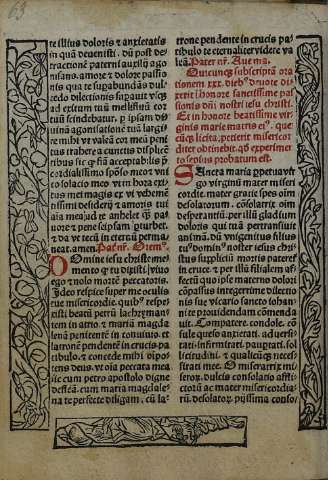 63
te illius doloris & anxietatis
in quā deuenisti. dū post de
tractionē paterni auxilij ago
nisano. amore & dolore passio
nis qua te superabundās dul
cedo dilectionis
ad exitum tuū
tuū scindebatur.
vinā agonisatione tuā largire
mihi vt valeā cor meū peni
tus rahere a cunctis
bus sic qʒ fiat acceptabilis p̄
cordialissimo sposo meo vni
co solacio meo. vt in hora exi
tus mei magis ex vehemē
tissimi desiderij & amoris tui
aia mea ad te anhelet quā pa
uore & pene seipsam perturbet.
& da vt tecū in eternū pericula
neat. amen. Pat̄ nr̄. Oremꝰ.
Omine iesu christe me
mento qʒ tu dixisti. viuo
ego & nolo mortē peccatoris.
Ideo respice super me oculis
tue misericordie. quibꝰ respex
isti beatū petrū lachrymans
tem in atrio. & maria magda
lenā penitentē in conuiuio. et
latronē pendentē in crucis pa
tibulo. & concede mihi oīpo
tens deus. vt oīa peccata mea
sic cum petro apostolo digne
defleā. cum maria magdale
na te perfecte diligam. cū la
trone pendente in crucis pa
tibulo te eternaliter videre va
leā. Pater nr̄. Aue ma.
Quicunqʒ subscriptā ora
tionem xxx. diebꝰ deuote di
xerit in honorē sanctissime pas
sionis dn̄i nostri iesu christi.
Et in honorē beatissime virgi
nis marie matris eiꝰ. que
cūqʒ licita petierit misericor
diter obtinebit. qđ experimē
to sepius probatum est.
Sancta maria perpetua vir
go virginū mater miseri
cordie. mater gratie spes oīm
desolatorum. cōsolatrix oīm
desperantiū. per illū gladium
doloris qui tuā pertransiuit
animā. dū vnigenitus filius
tuꝰ dominꝰ noster iesus chris
tus suppliciū mortis patere
in cruce. & per illū filialem af
fectū quo ipse materno dolori
cōpassus integerrime dilectio
nis sue vicario sancto iohan
ni te prouidendam cōmenda
uit. Cōpatere. condole. cō
sule queso anxietati. aduersi
tati. infirmitati. paupertati. sol
licitudini. & qualicūqʒ necessi
tati mee. O miserarrix mi
serorū. dulcis consolatio afflic
torū ac mater misericordia
rū. desolatorū pijssima conso